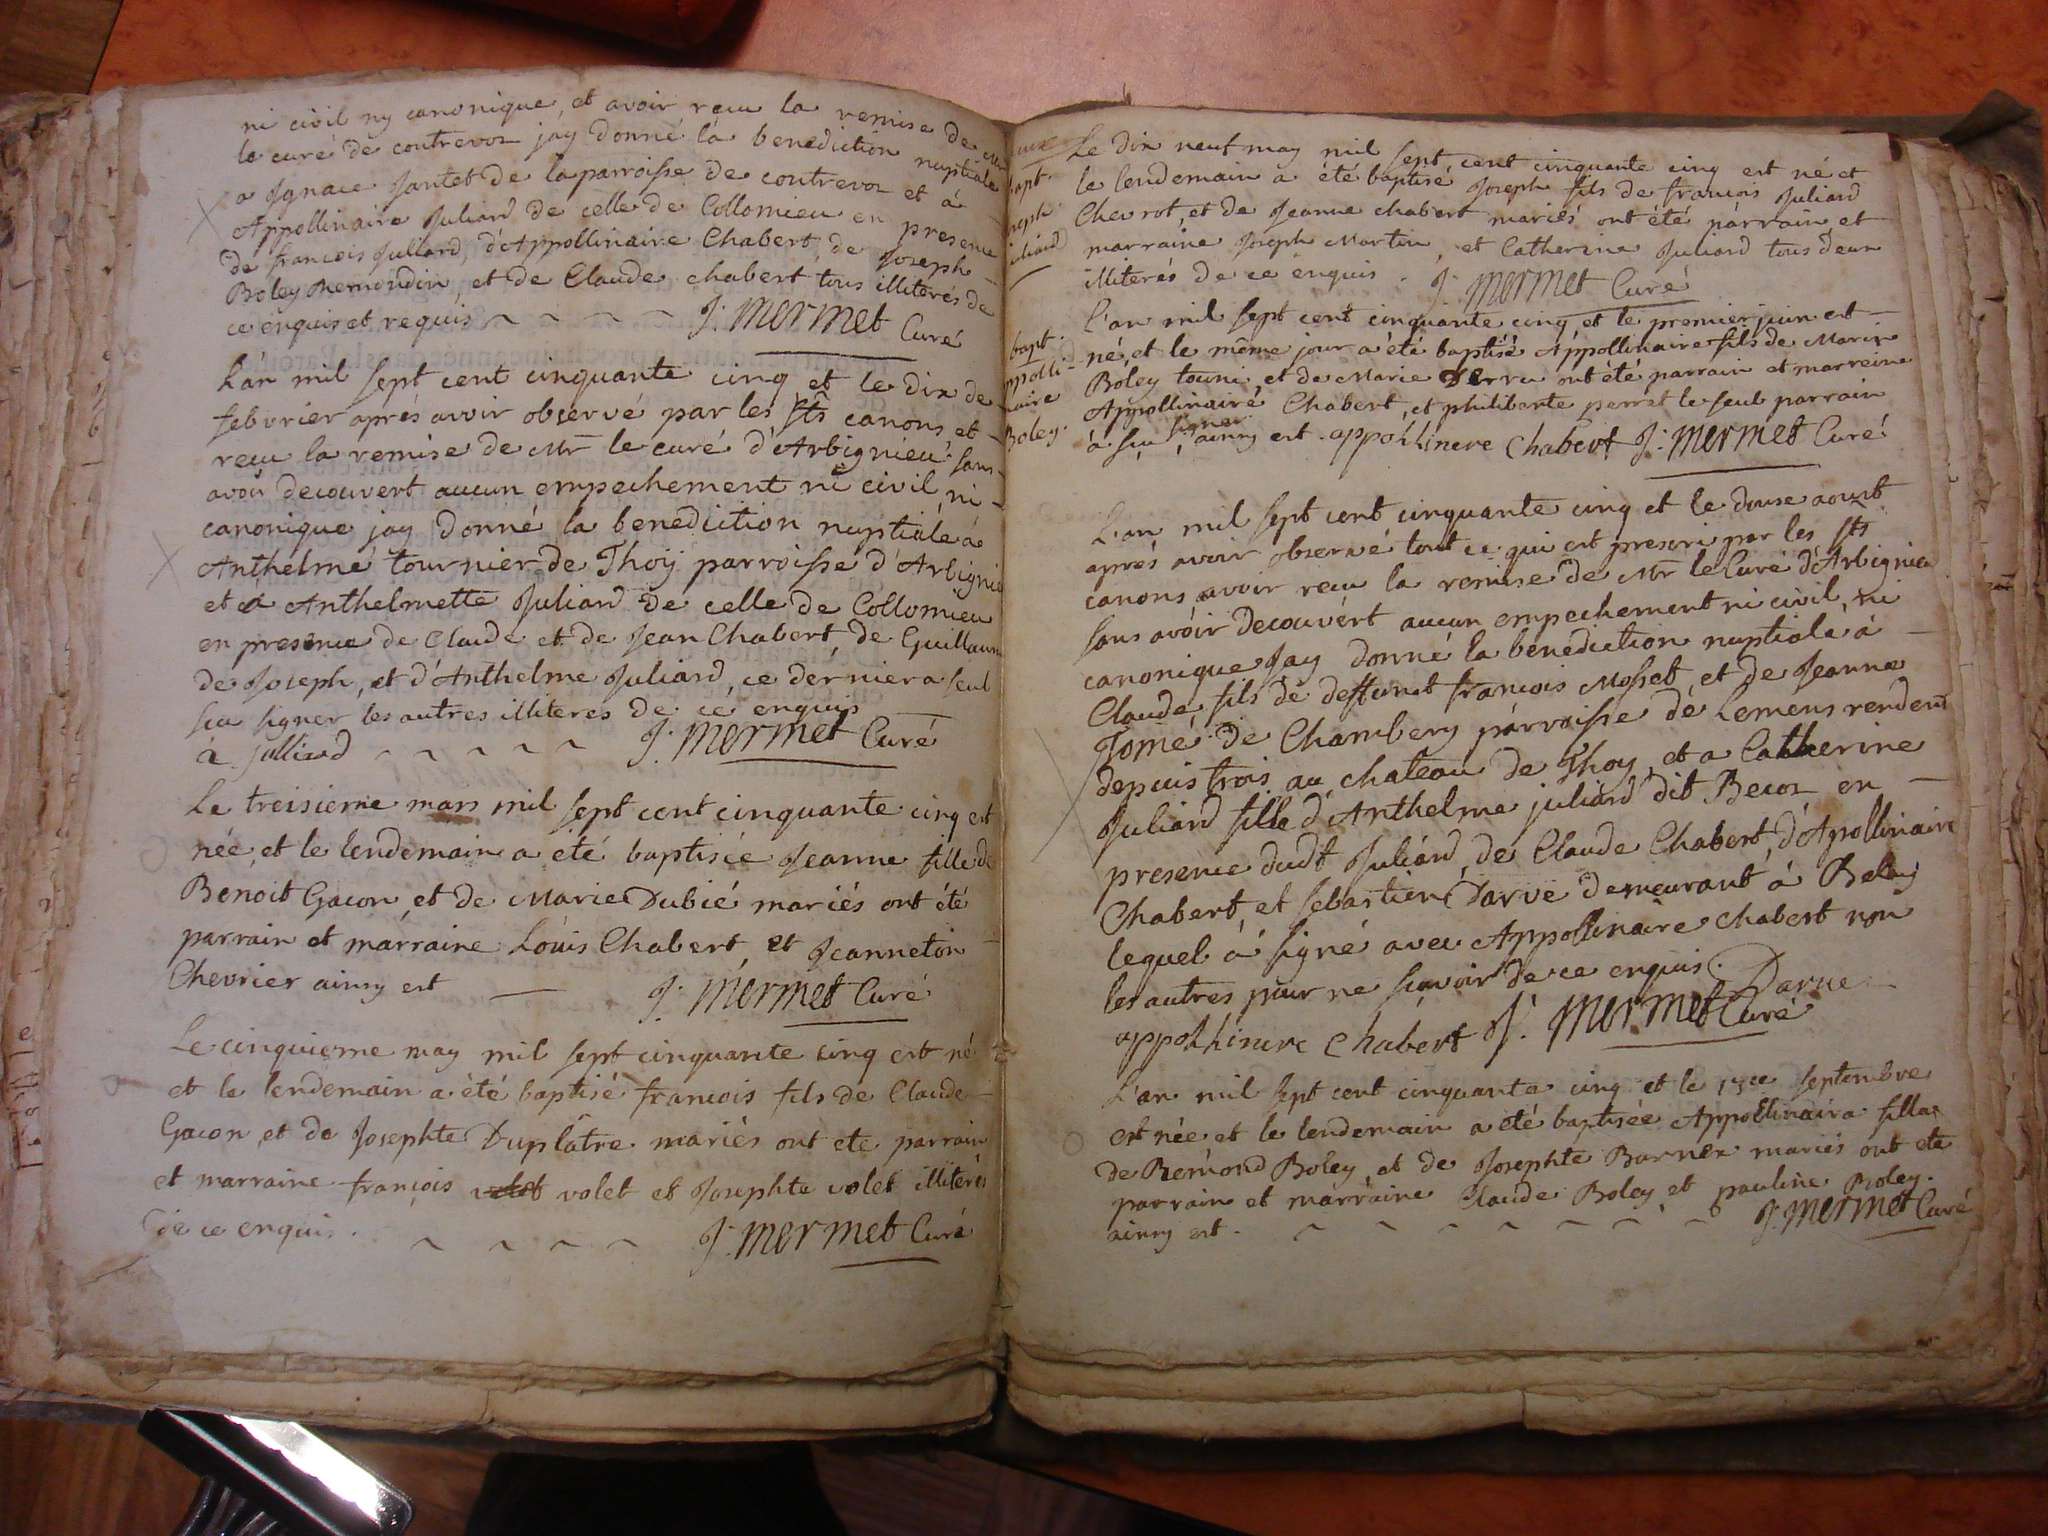 ni civil ny canonique, et avoir reçu la remise de Mr
le curé de contrevoz jay donné la benediction nuptiale
a Ignace Jantet de la parroisse de contrevoz et à
Appollinaire Juliard de celle de Collomieu en presence
de francois Julliard, d'Appollinaire Chabert, de Joseph
Boley Remondin, et de Claude chabert tous illiterés de
ce enquis et requis J: Mermet Curé
L'an mil sept cent cinquante cinq et le dix de
febvrier aprés avoir observé par les Sts canons et
reçu la remise de Mr le curé d'Arbignieu sans
avoir decouvert aucun empechement ni civil ni
canonique jay donné la benediction nuptiale à
Anthelme tournier de Thoÿ parroisse d'Arbignie
et a Anthelmette Juliard de celle de Collomieu
en presence de Claude et de Jean Chabert, de Guillaume
de Joseph, et d'Anthelme Juliard, ce dernier a seul
sçu signer les autres illiteres de ce enquis
a julliard J: Mermet Curé
Le treisieme mars mil sept cent cinquante cinq est
née, et le lendemain a été baptisée Jeanne fille de
Benoit Gacon, et de Marie Dubié mariés ont été
parrain et marraine Loüis Chabert, et Jeanneton
Chevrier ainsy est J: Mermet Curé
Le cinquieme may mil sept cinquante cinq est né
et le lendemain a été baptisé francois fils de Claude
Gacon, et de Josephte Duplâtre mariés ont eté parrain
et marraine françois volet et Josephte volet illiterés
de ce enquis. J: Mermet Curé
bapt.
Joseph
Juliard
Le dix neuf may mil sept cent cinquante cinq est né et
le lendemain a été baptisé Joseph fils de francois Juliard
Chevrot, et de Jeanne chabert mariés ont été parrain et
marraine Joseph Martin, et Catherine Juliard tous deux
illiterés de ce enquis. J: Mermet Curé
bapt.
ppolli-
naire
Boley.
L'an mil sept cent cinquante cinq, et le premier juin est
né, et le même jour a été baptisé Appollinaire fils de Marin
Boley touni, et de Marie ont été parrain et marreine
Appollinaire Chabert, et philiberte perret le seul parrain
à sçu signer ainsy est. appollinere Chabert J: Mermet Curé
L'an mil sept cent cinquante cinq et le douse aoust
aprés avoir observé tout ce qui est prescri par les Sts
canons avoir reçu la remise de Mr le Curé d'Arbignieu
sans avoir decouvert aucun empechement ni civil, ni
canonique Jay donné la benediction nuptiale à
Claude fils de deffunct françois Mosset, et de Jeanne
Tomé de Chambery parroisse de Lemens rendent
depuis trois au chateau de Thoy, et a Catherine
Juliard fille d'Anthelme juliard dit Becoz en
presence dudt Juliard, de Claude Chabert, d'Apollinaire
Chabert, et sebastien Darve demeurant à Beley
lequel à signé avec Appollinaire chabert non
les autres pour ne sçavoir de ce enquis. Darve
appollinere Chabert J: Mermet Curé
L'an mil sept cent cinquante cinq et le 13e septembre
est née et le lendemain a été baptisée Appollinaire fille
de Remond Boley, et de Josephte Barnex mariés ont eté
parrain et marraine Claude Boley, et pauline Boley.
ainsy est. J: Mermet Curé